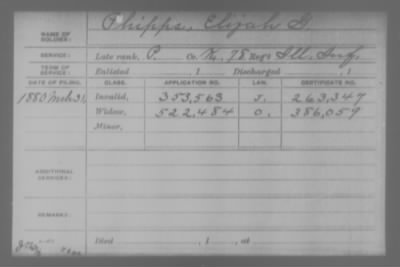 NAME OF SOLDIER: Phipps, Elijah G.
SERVICE: Late rank, P. Co. K, 78 Reg't Ill. Inf.
TERM OF SERVICE: Enlisted , 1 Discharged , 1
DATE OF FILING. CLASS. APPLICATION NO. LAW. CERTIFICATE NO.
1880 Mch 31 Invalid, 353,563 263,347
Widow, 522,484 O. 386,059
Minor,
ADDITIONAL SERVICES:
REMARKS:
Died , 1 , at